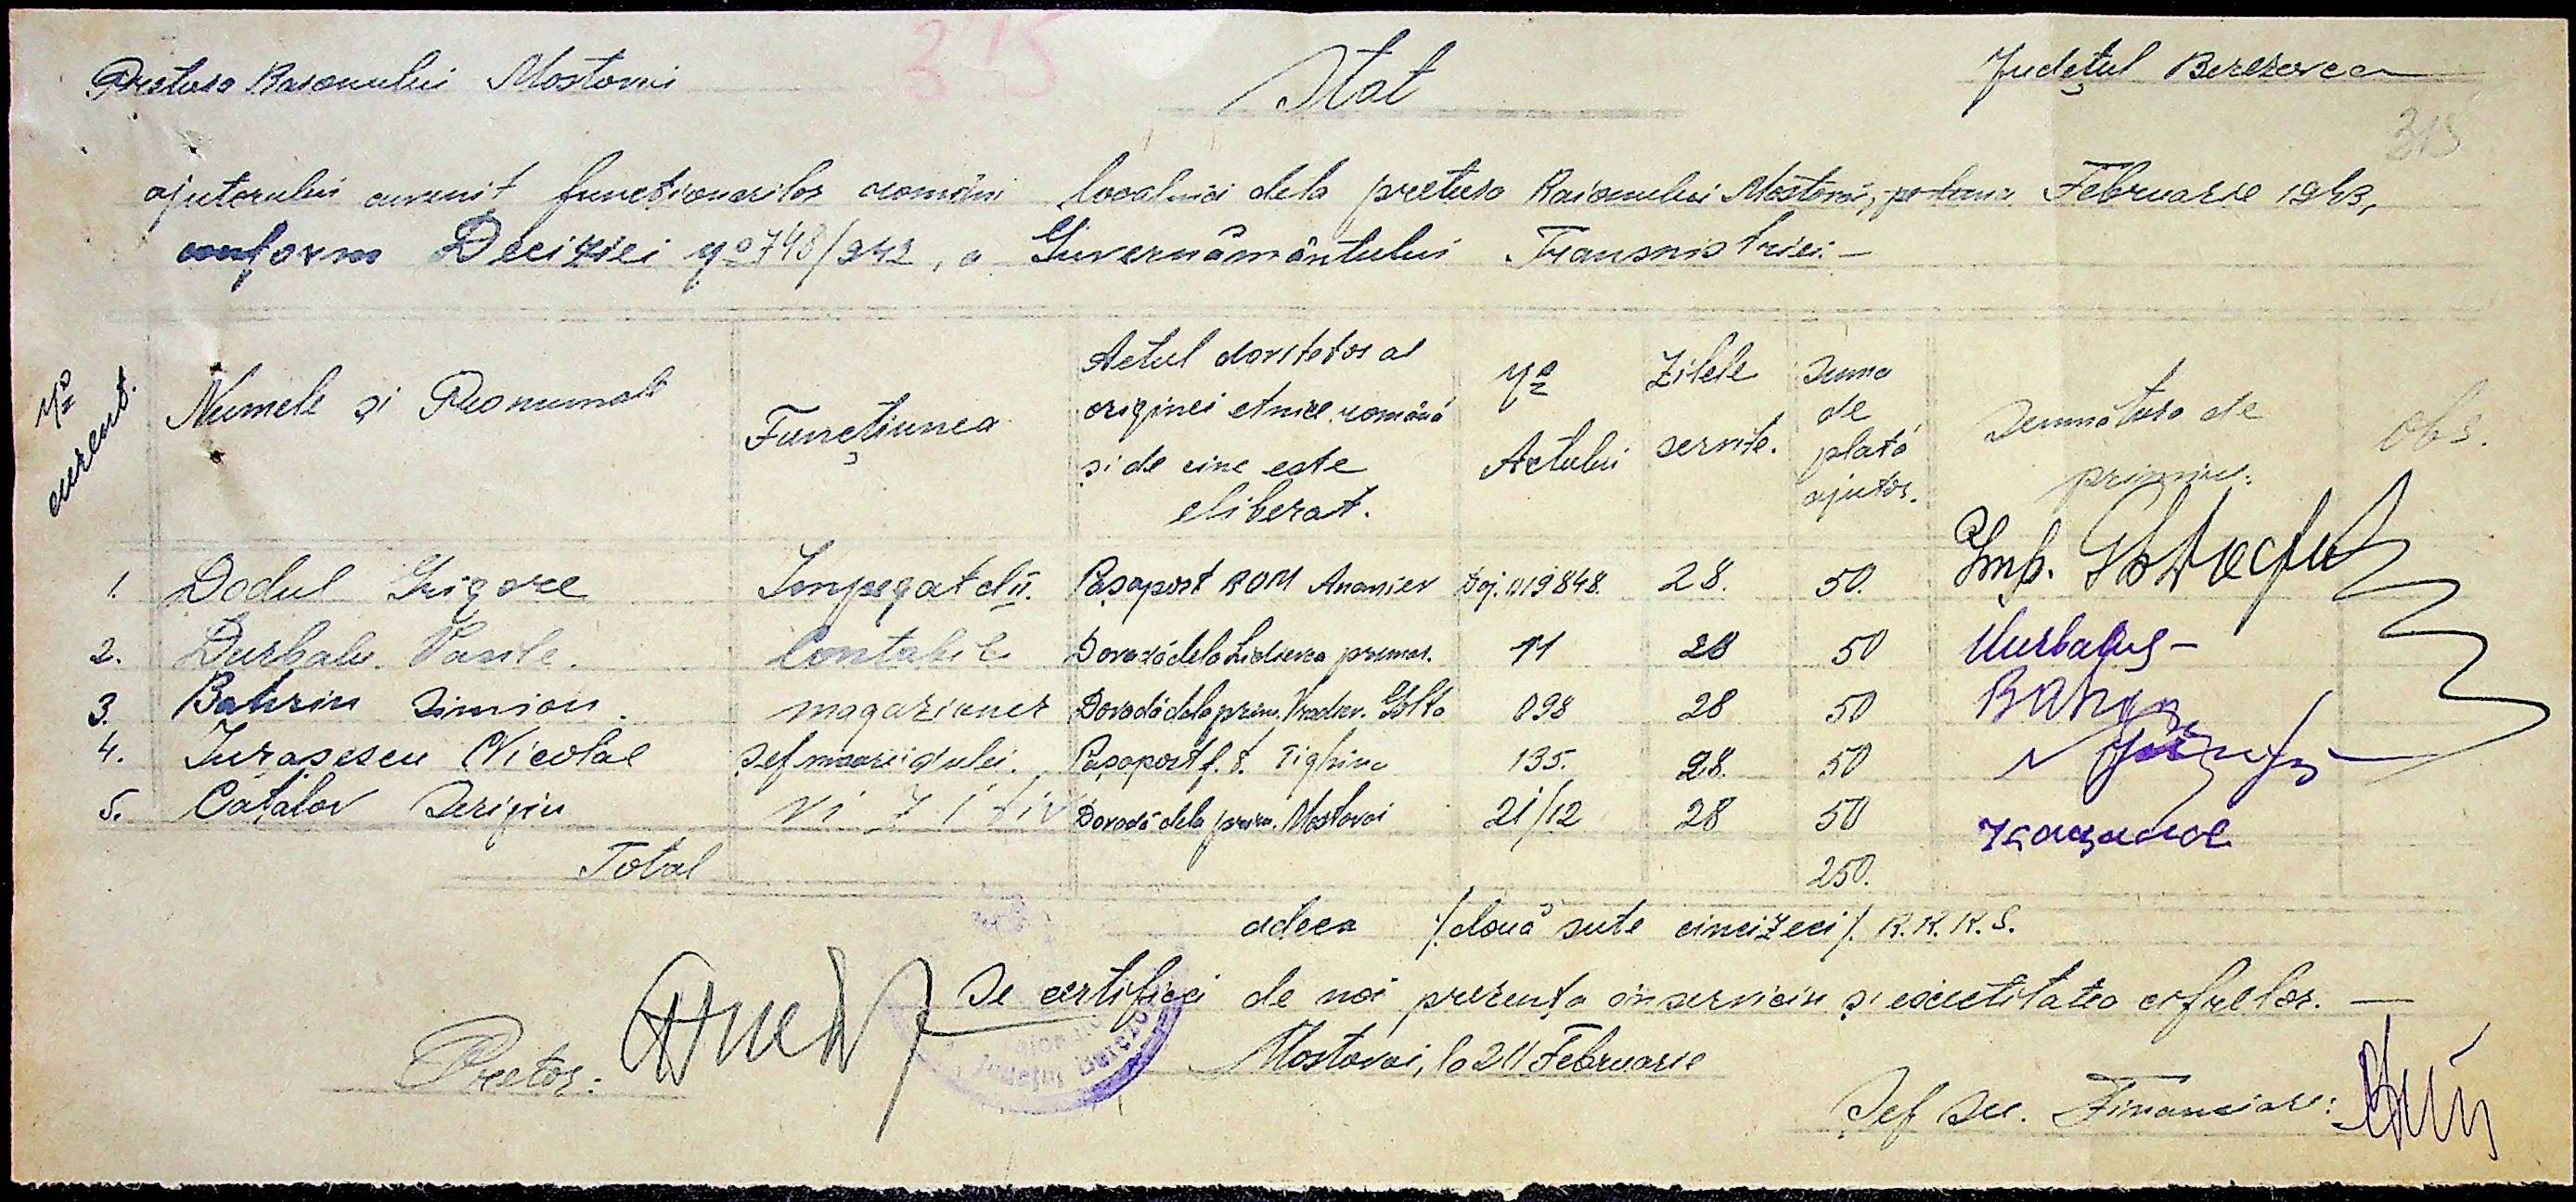 Pretura Raionului Mostovoi
315
Stat
Județul Berezovca
315
ajutorului cuvenit funcționarilor români localnici dela pretura Raionului Mostovoi, pe luna Februarie 1943,
conform Deciziei No 748/942, a Guvernământului Transnistriei.-
No curent.
Numele și Pronumele
Funcțiunea
Actul doveditor al originei etnice română și de cine este eliberat.
No Actului
Zilele servite.
Suma de plată ajutor.
Semnătura de primire.
Obs.
1. Dodul Grigore Impegat cl. II. Pașaport ROM Ananiev 019848. 28. 50.
2. Durbalu Vasile. Contabil Dovadă dela Lidievca primar. 11 28 50
3. Bahrin Simion. magazioner Dovadă dela prim. Vradiev. Golta 098 28 50
4. Iurașescu Nicolae Șef Pașaport f. 8. Tighina 135. 28. 50
5. Cațalov Serigiu Dovadă dela prim. Mostovoi 21/12 28 50
Total 250.
adeca /două sute cincizeci/. R.K.K.S.
Se certifică de noi prezența în serviciu și exactitatea cifrelor. —
Pretor:
Mostovoi, la 24 Februarie
Șef Sec. Financiare:
Județul Berezo